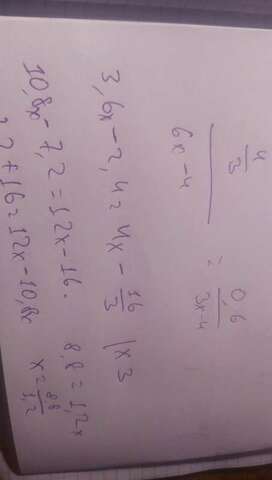 4/3 / 6x-4 = 0,6 / 3x-4
3,6x-2,4=4x-16/3 |x3
10,8x-7,2=12x-16. 8,8=1,2x
,2+16=12x-10,8x x=8,8/1,2